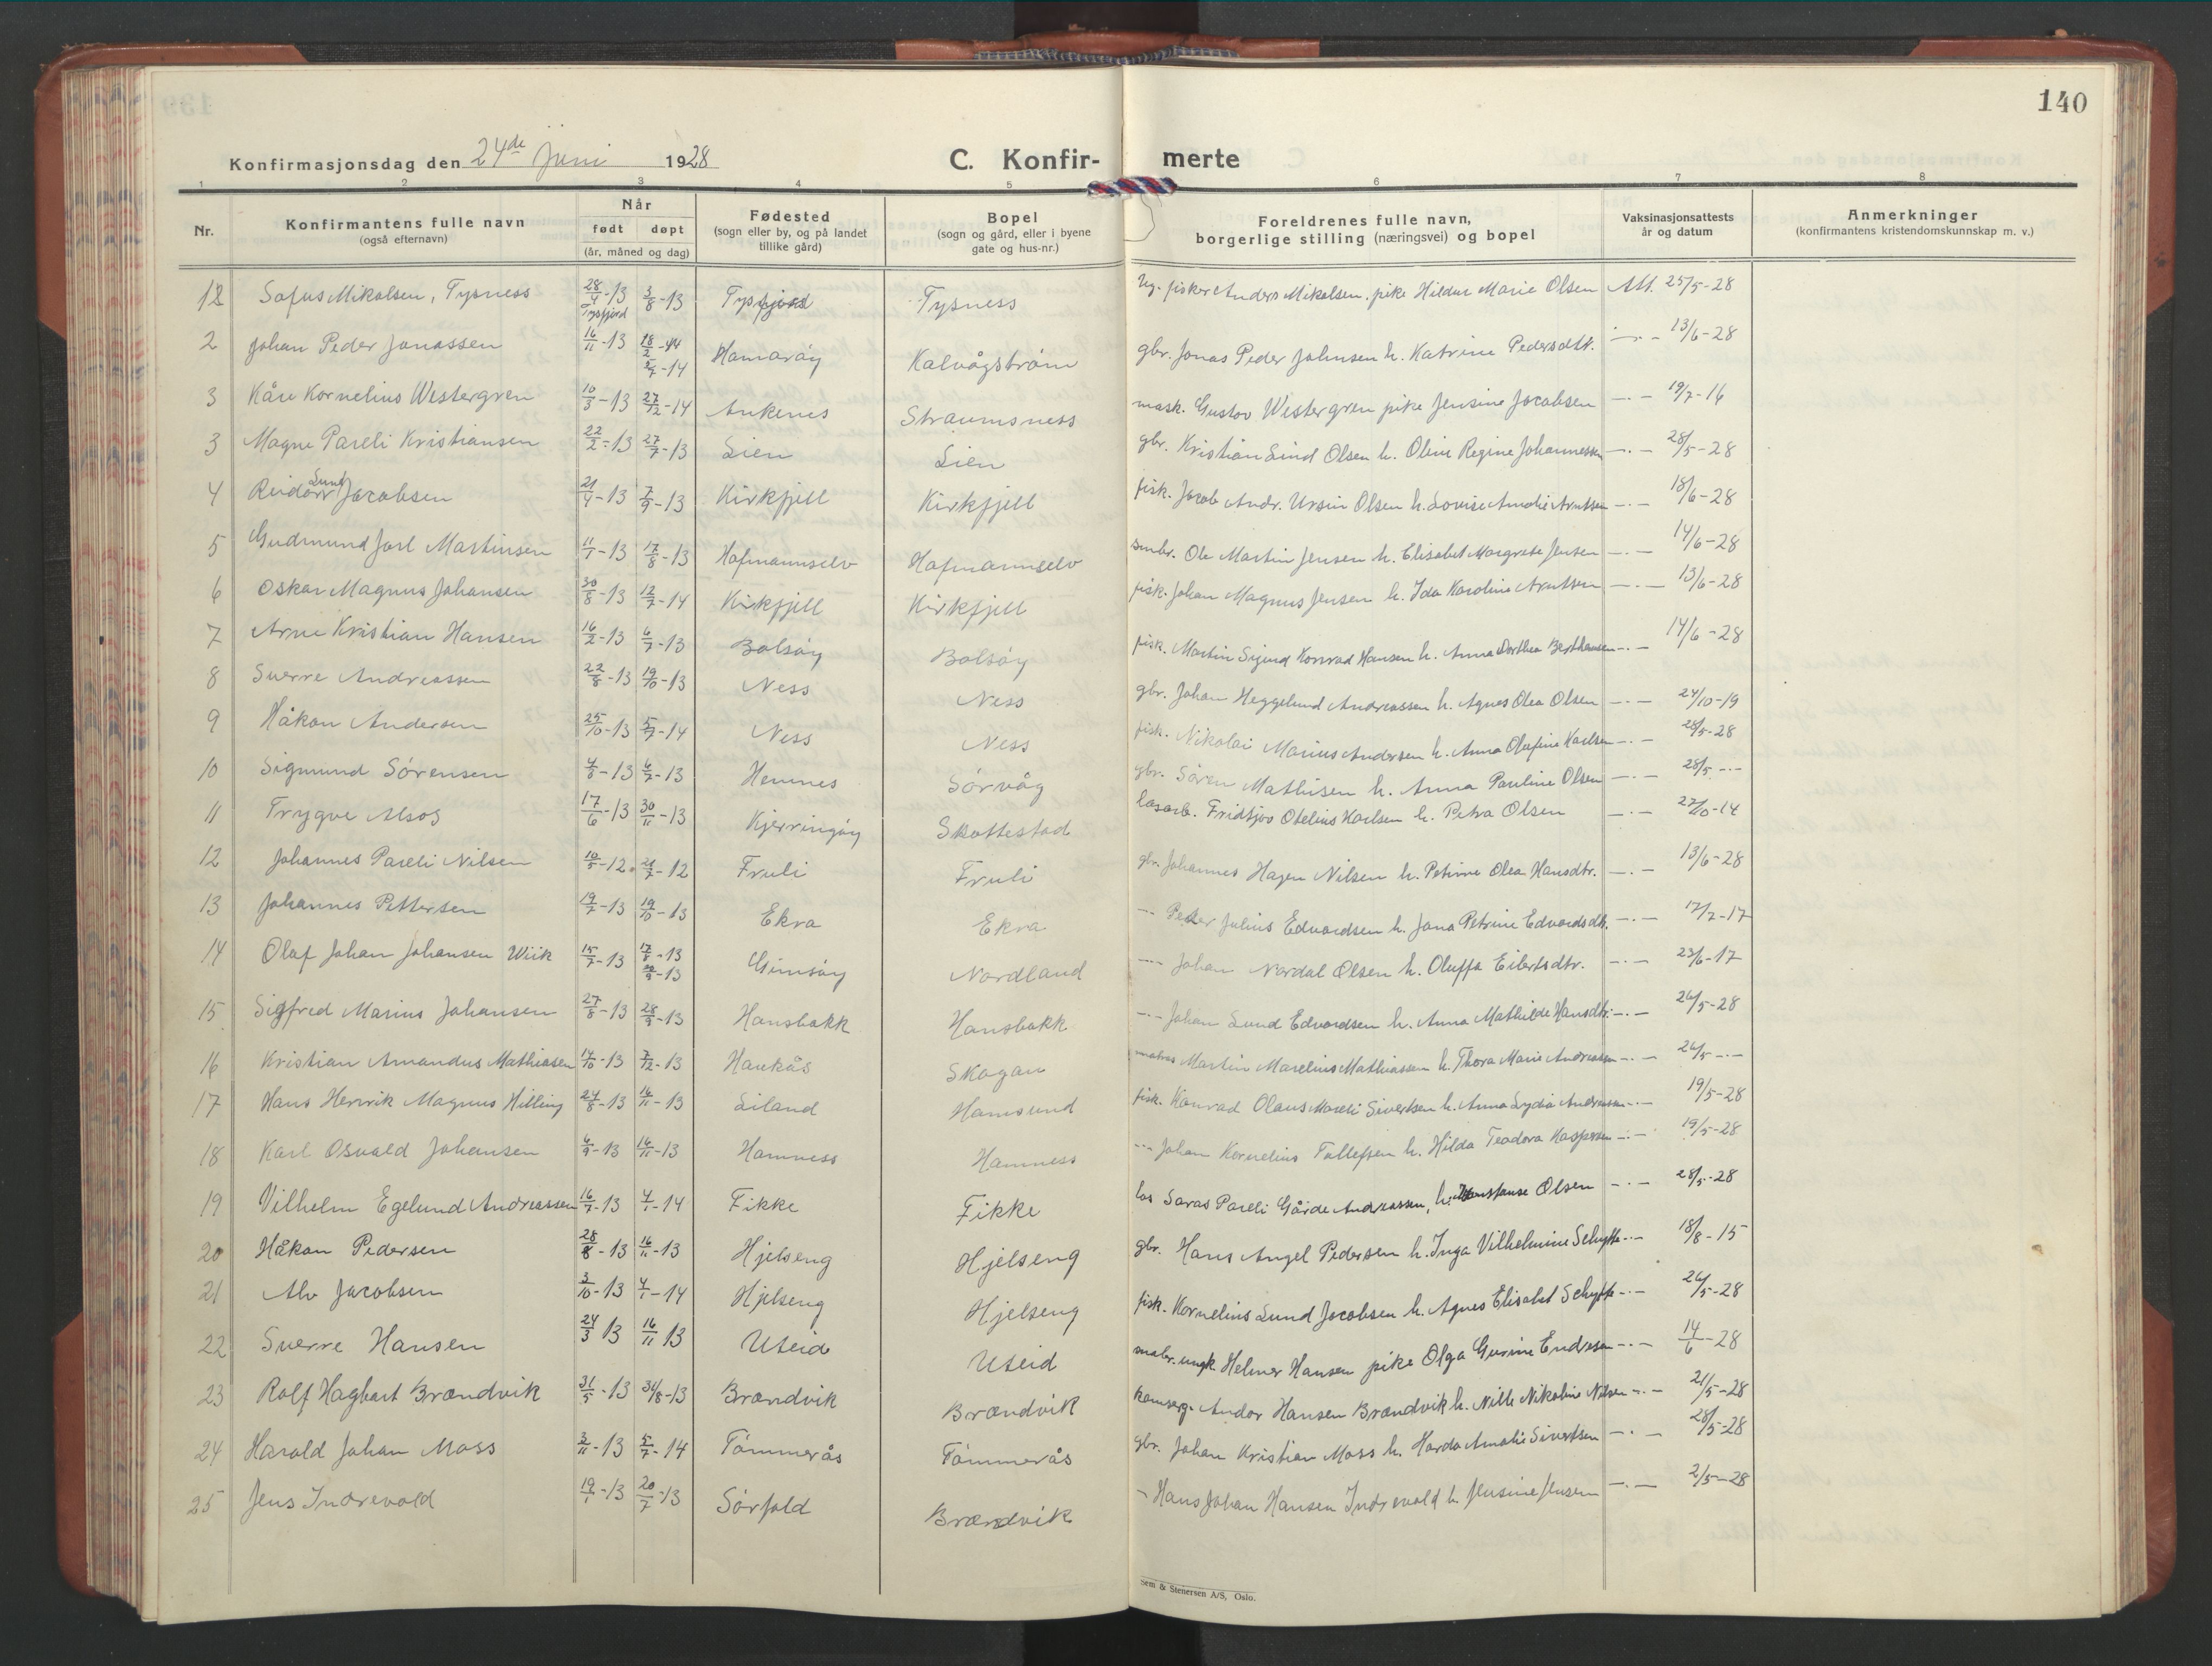 140
Konfirmasjonsdag den 24de juni 1928
C. Konfir- merte
1 2 3 4 5 6 7 8
Nr.
Konfirmantens fulle navn
(også efternavn)
Når
født døpt
(år, måned og dag)
Fødested
(sogn eller by, og på landet
tillike gård)
Bopel
(sogn og gård, eller i byene
gate og hus-nr.)
Foreldrenes fulle navn,
borgerlige stilling (næringsvei) og bopel
Vaksinasjonsattests
år og datum
Anmerkninger
(konfirmantens kristendomskunnskap m. v.)
12 Sofus Mikalsen, Tysness 28/4-13 Tysfjord 3/8-13 Tysfjord Tysness Ug. fisker Anders Mikalsen, pike Hildur Marie Olsen Att. 25/5-28
2 Johan Peder Jonassen 16/11-13 18/2-14 Hamarøy Kalvågstrøm gbr. Jonas Peder Johnsen h. Katrine Pedersdtr. -.- 13/6-28
3 Kåre Kornelius Westergren 10/3-13 27/12-14 Ankenes Straumsness mask. Gustav Westergren pike Jensine Jacobsen -.- 19/7-16
3 Magne Pareli Kristiansen 22/2-13 27/7-13 Lien Lien gbr. Kristian Lind Olsen h. Oline Regine Johannessen -.- 28/5-28
4 Reidar Lund Jacobsen 21/4-13 7/9-13 Kirkfjell Kirkfjell fisk. Jacob Andr. Ursin Olsen h. Lovise Amalie Arntsen -.- 18/6-28
5 Gudmund Jarl Martinsen 11/1-13 17/8-13 Hofmannselv Hofmannselv Ole Martin Jensen h. Elisabet Margrete Jensen -.- 14/6-28
6 Oskar Magnus Johansen 30/8-13 12/7-14 Kirkfjell Kirkfjell fisk. Johan Magnus Jensen h. Ida Karoline Arntsen -.- 13/6-28
7 Arne Kristian Hansen 16/2-13 6/7-13 Bolsøy Bolsøy fisk. Martin Sigurd Konrad Hansen h. Anna Dorthea Berthensen -.- 14/6-28
8 Sverre Andreassen 22/8-13 19/10-13 Ness Ness gbr. Johan Heggelund Andreassen h. Agnes Olea Olsen -.- 24/10-19
9 Håkon Andersen 25/10-13 5/7-14 Ness Ness fisk. Nikolai Marius Andersen h. Anna Olufine Karlsen -.- 28/5-28
10 Sigmund Sørensen 4/6-13 6/7-13 Hemnes Sørvåg gbr. Søren Mathisen h. Anna Pauline Olsen -.- 28/5 -.-
11 Trygve Alsos 17/6-13 30/11-13 Kjerringøy Skottestad løsarb. Fridtjov Otelius Karlsen h. Petra Olsen -.- 27/10-14
12 Johannes Pareli Nilsen 10/5-12 21/7-12 Fruli Fruli gbr. Johannes Hagen Nilsen h. Petrine Olea Hansdtr. -.- 13/6-28
13 Johannes Pettersen 19/7-13 19/10-13 Ekra Ekra -- Peder Julius Edvardsen h. Jana Petrine Edvardsdtr. -.- 17/7-17
14 Olaf Johan Johansen Wiik 15/7-13 17/8-13 Gimsøy Nordland -- Johan Nordal Olsen h. Oluffa Eilertsdtr. -.- 23/6-17
15 Sigfred Marius Johansen 27/8-13 28/9-13 Hansbakk Hansbakk -- Johan Lund Edvardsen h. Anna Mathilde Hansdtr. -.- 26/5-28
16 Kristian Amandus Mathiasen 14/10-13 7/12-13 Haukås Skagan Martin Marelius Mathiassen h. Thora Marie Andreassen -.- 26/5 -.-
17 Hans Henrik Magnus Hilling 24/8-13 16/11-13 Liland Hamsund fisk. Konrad Olaus Mareli Sivertsen h. Anna Lydia Andreassen -.- 19/5-28
18 Karl Osvald Johansen 6/9-13 16/11-13 Hamness Hamness -- Johan Kornelius Tollefsen h. Hilda Teodora Kaspersen -.- 19/5-28
19 Vilhelm Egelund Andreassen 16/7-13 4/1-14 Fikke Fikke løs Saras Pareli Gårde Andreassen, h. Konstanse Olsen -.- 28/5-28
20 Håkon Pedersen 28/8-13 16/11-13 Hjelseng Hjelseng gbr. Hans Angel Pedersen h. Inga Vilhelmine Schytte -.- 18/8-15
21 Alv Jacobsen 3/10-13 4/1-14 Hjelseng Hjelseng fisk. Kornelius Lund Jacobsen h. Agnes Elisabet Schytte -.- 26/5-28
22 Sverre Hansen 24/3 13 16/11 13 Uteid Uteid ungk. Helmer Hansen pike Olga Gurine Endresen -.- 14/6-28
23 Rolf Hagbart Brændvik 31/5-13 31/8-13 Brændvik Brændvik Andor Hansen Brændvik h. Nille Nikoline Nilsen -.- 21/5-28
24 Harald Johan Moss 3/11-13 5/7-14 Tømmerås Tømmerås gbr. Johan Kristian Moss h. Harda Amalie Sivertsen -.- 28/5-28
25 Jens Indrevold 19/1-13 20/7-13 Sørfold Brændvik - Hans Johan Hansen Indrevold h. Jensine Jensen -.- 2/5-28
Sem & Stenersen A/S, Oslo.